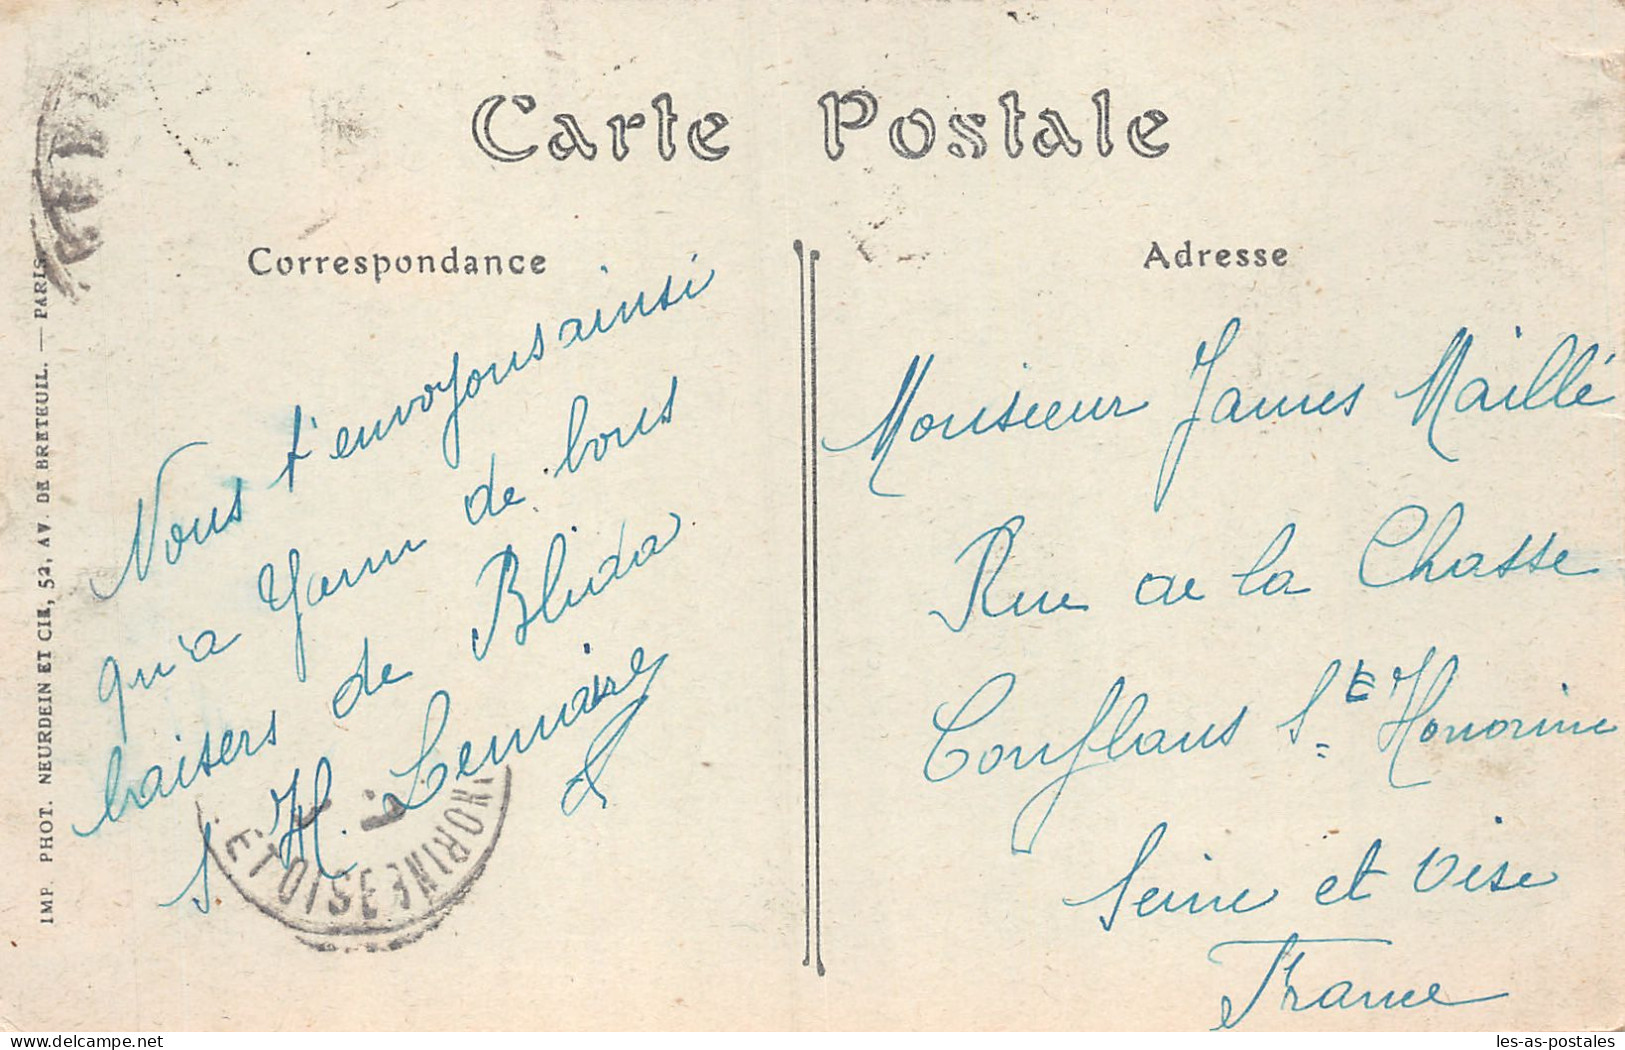 Carte Postale
Correspondance
Nous t'envoyons ainsi
qu'a Yann de bons
baisers de Blida
S. H. Lemaire
Adresse
Monsieur James Maillé
Rue de la Chasse
Conflans Ste Honorine
Seine et Oise
France
IMP. PHOT. NEURDEIN ET CIE, 52, AV. DE BRETEUIL. — PARIS.
ET OISE
NORINE
les-as-postales